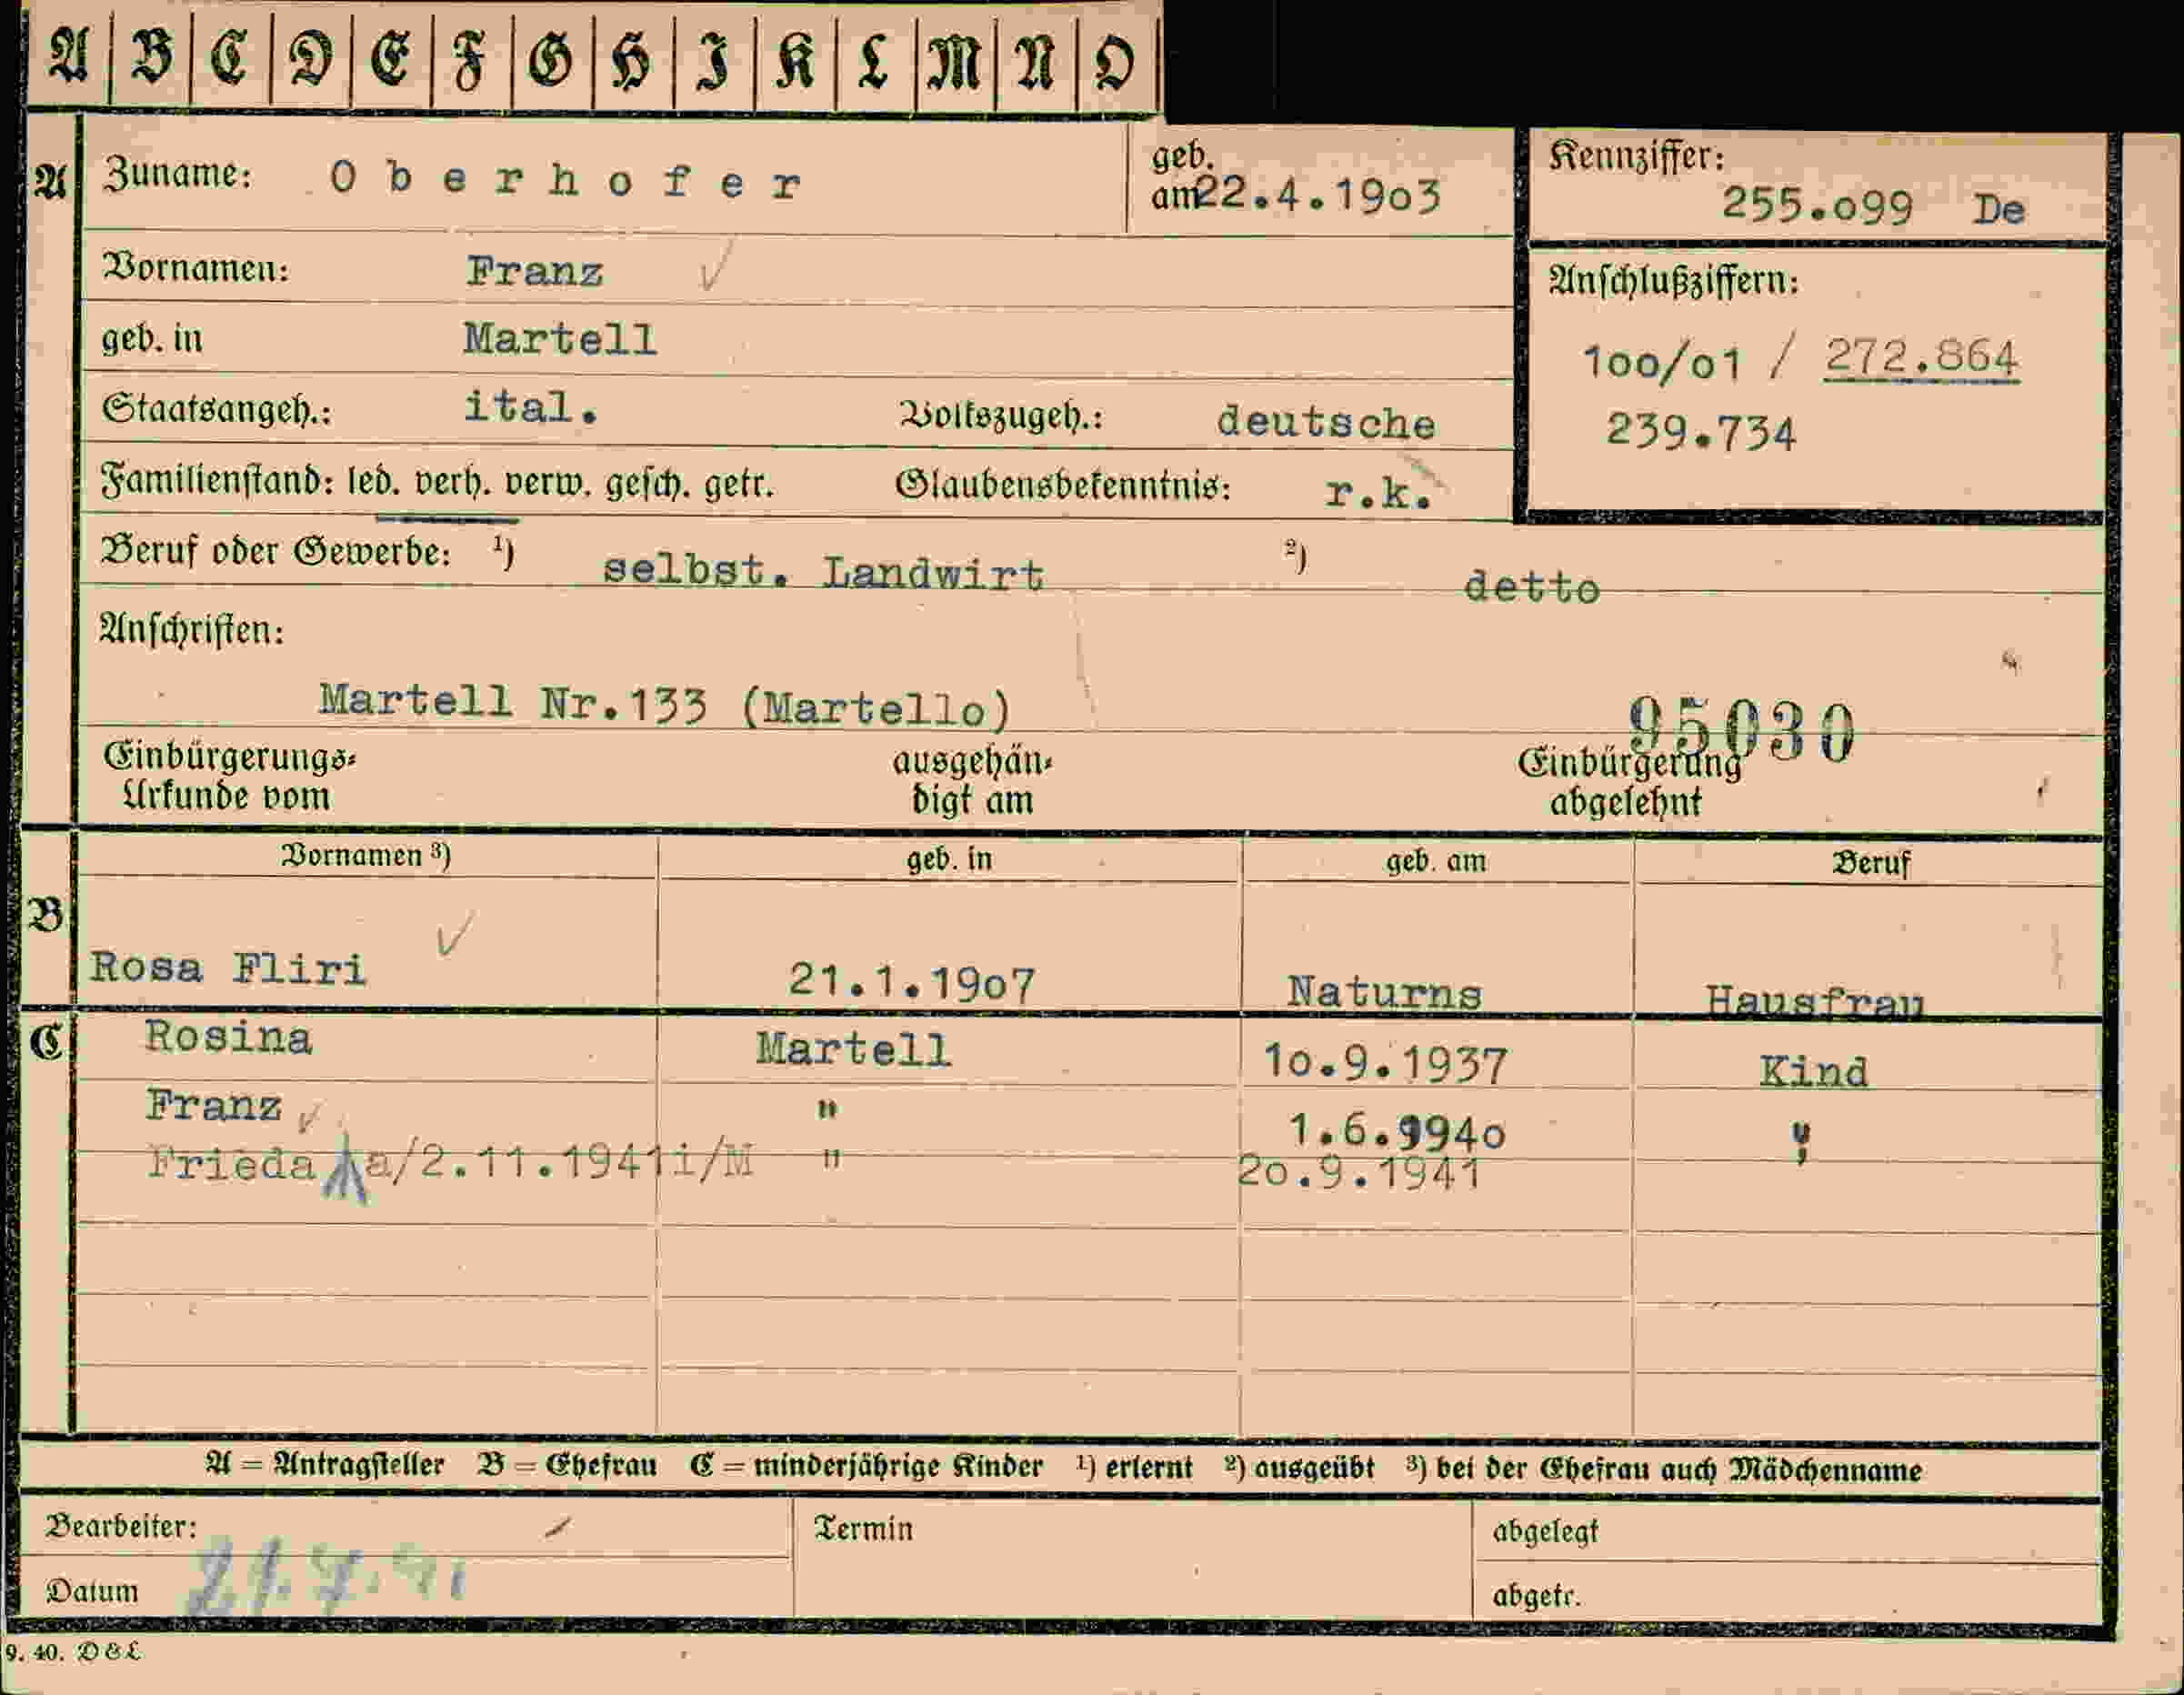 A B C D E F G H I K L M N O
A Zuname: Oberhofer geb. am 22.4.19o3 Kennziffer: 255.o99 De
Vornamen: Franz
geb. in Martell
Anschlußziffern:
1oo/o1 / 272.864
239.734
Staatsangeh.: ital. Volkszugeh.: deutsche
Familienstand: led. verh. verw. gesch. getr. Glaubensbekenntnis: r.k.
Beruf oder Gewerbe: ¹) selbst. Landwirt ²) detto
Anschriften:
Martell Nr.133 (Martello) 95030
Einbürgerungs- Urkunde vom ausgehän- digt am Einbürgerung abgelehnt
Vornamen ³) geb. in geb. am Beruf
B Rosa Fliri 21.1.19o7 Naturns Hausfrau
C Rosina Martell 1o.9.1937 Kind
Franz " 1.6.994o "
Frieda a/2.11.1941i/M " 2o.9.1941
A = Antragsteller B = Ehefrau C = minderjährige Kinder ¹) erlernt ²) ausgeübt ³) bei der Ehefrau auch Mädchenname
Bearbeiter: Termin abgelegt
Datum abgetr.
9. 40. D&L